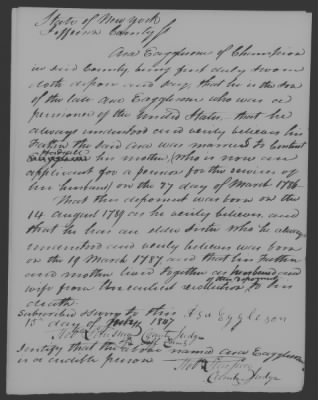 State of New York
Jefferson County ss
Asa Eaggleson of Champion
in said County being first duly sworn
doth depose and say, that he is the son
of the late Asa Eaggleson who was a
pensioner of the United States, that he
always understood and verily believes his
Father the said Asa was married to Content
his mother, (who is now an
applicant for a pension for the services of
her husband) on the 27 day of March 1786
That this deponent was born on the
14 August 1789 as he verily believes, and
that he has an older sister who he always
understood and verily believes was born
on the 19 March 1787 and that his Father
and mother lived together as husband and
wife from the earliest recollection of this deponent to his
death.
Subscribed & sworn to this Asa Eggleson
15 day of 1847
County Judge
I certify that the above named Asa Eaggleson
is a credible person
County Judge